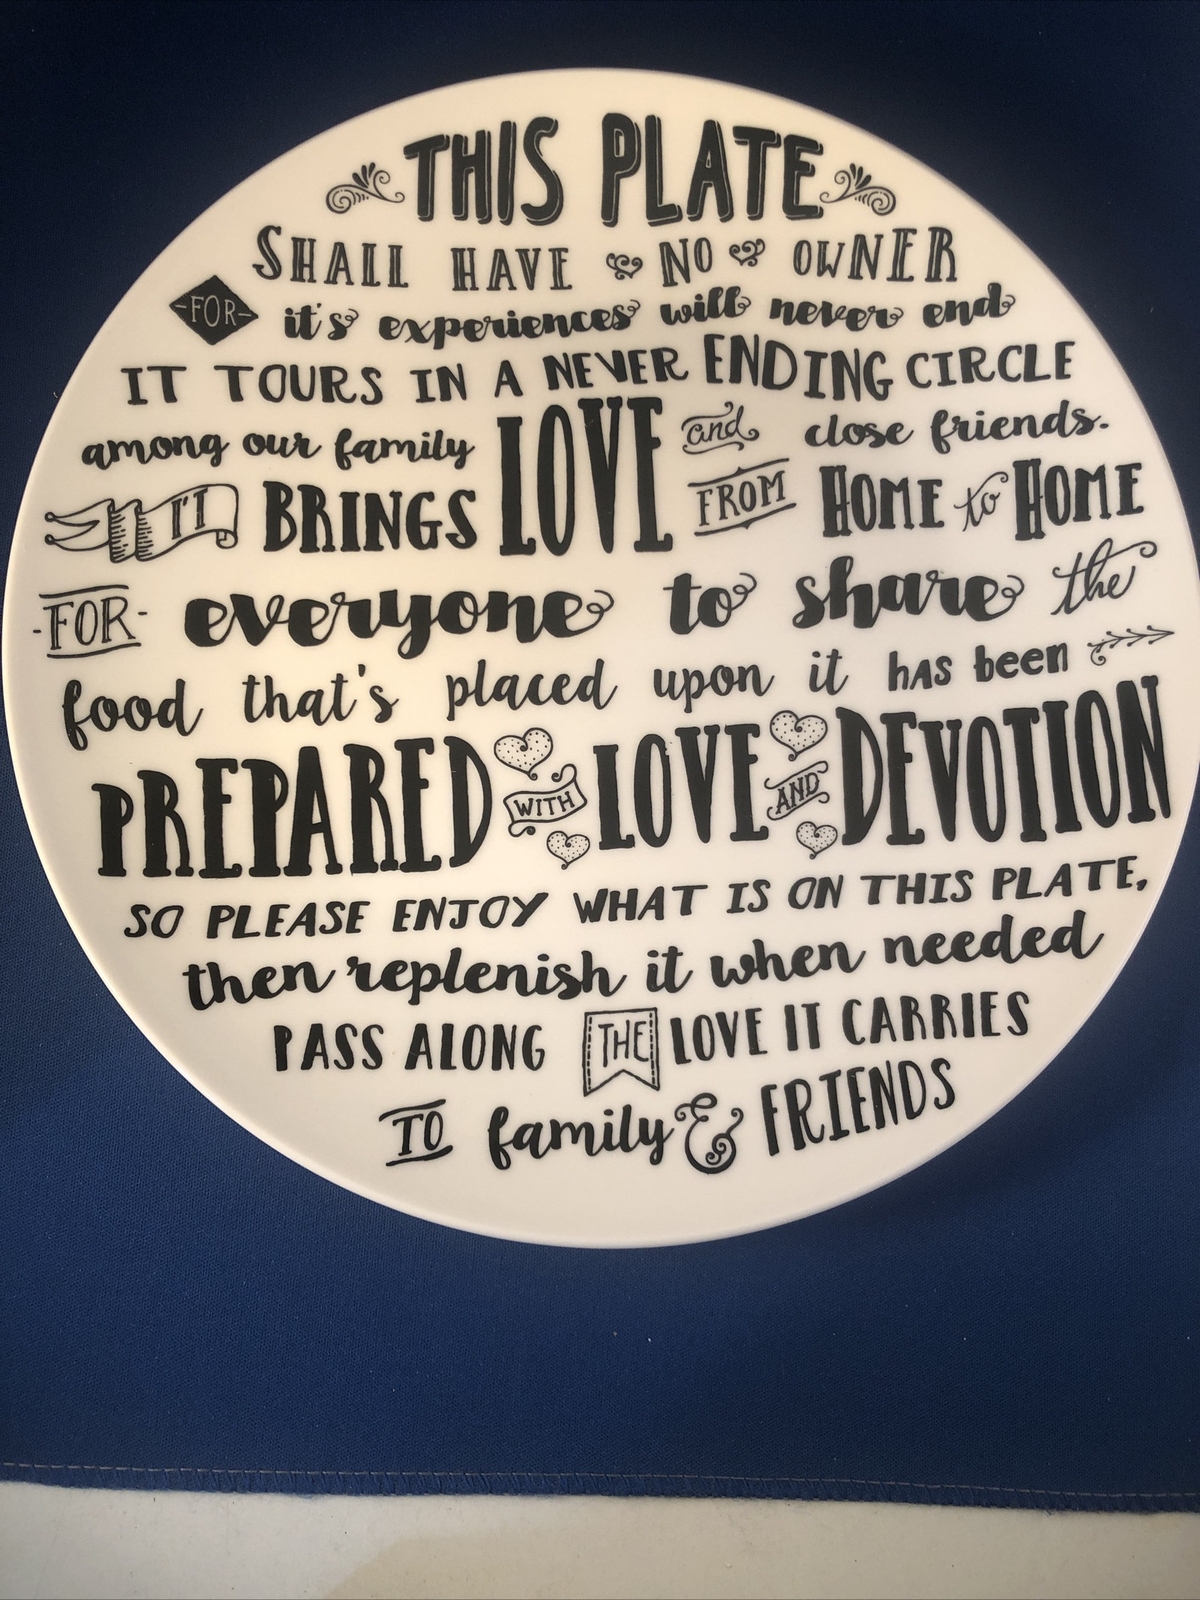 THIS PLATE
SHALL HAVE NO OWNER
-FOR- it's experiences will never end
IT TOURS IN A NEVER ENDING CIRCLE
among our family and close friends.
IT BRINGS LOVE FROM HOME to HOME
-FOR- everyone to share the
food that's placed upon it has been
PREPARED WITH LOVE AND DEVOTION
SO PLEASE ENJOY WHAT IS ON THIS PLATE,
then replenish it when needed
PASS ALONG THE LOVE IT CARRIES
TO family & FRIENDS